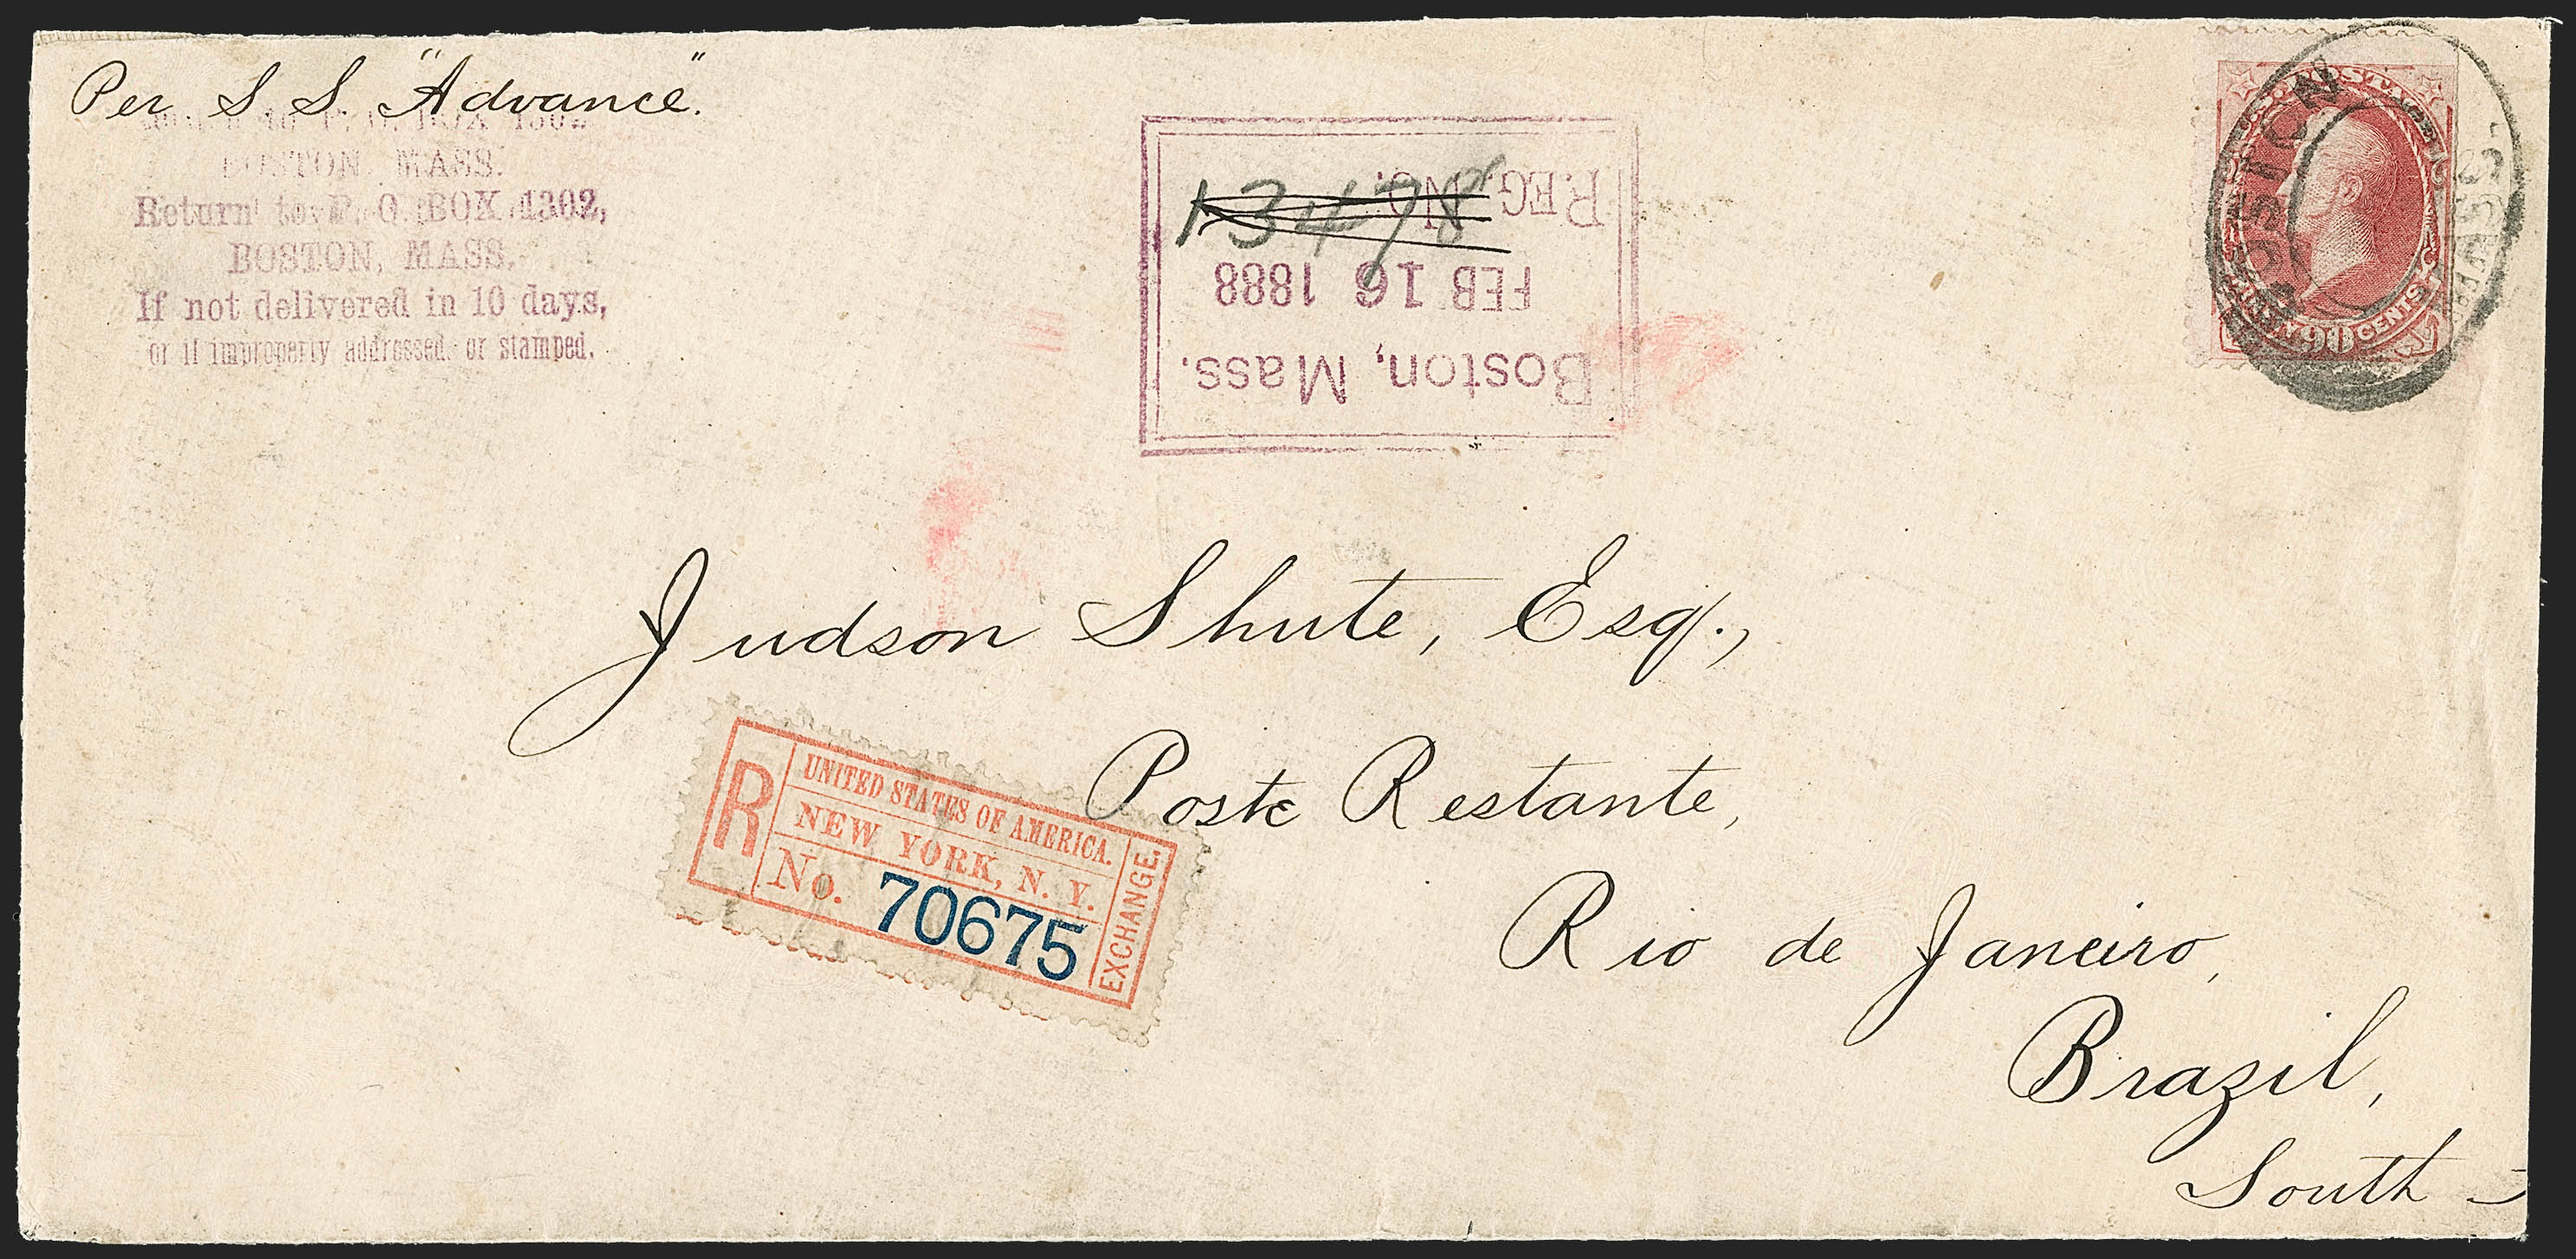 Per S. S. "Advance".
P. O. BOX 1302
BOSTON, MASS.
Return to P. O. BOX 1302,
BOSTON, MASS.
If not delivered in 10 days,
or if improperly addressed or stamped.
Boston, Mass.
FEB 16 1888
REG. NO.
13478
POSTAGE
90 CENTS
BOSTON
MASS.
Judson Shute, Esq.,
Poste Restante,
Rio de Janeiro,
Brazil,
South -
R
UNITED STATES OF AMERICA.
NEW YORK, N. Y.
No. 70675
EXCHANGE.